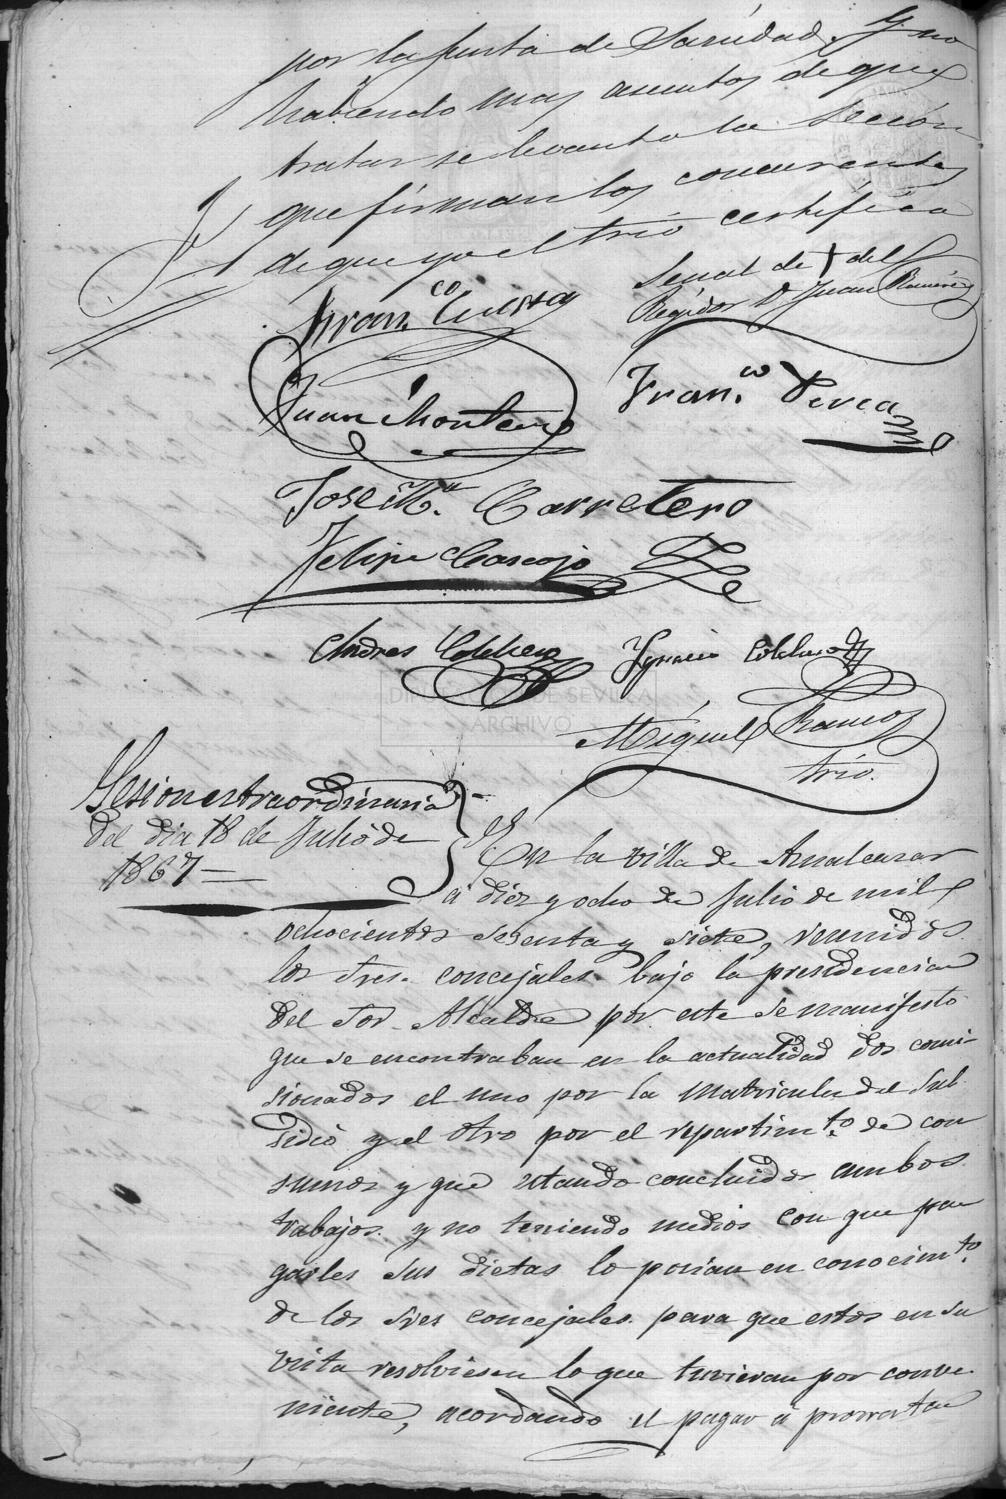 por la Junta de Sanidad. Y no
habiendo mas asuntos de que
tratar se levanto la Seción
que firman los concurrentes
de que yo el Srio certifico
Señal de + del
Regidor D. Juan Ramirez
Fran.co Cuesta
Juan Montero
Fran.co Perea
Jose M.a Carretero
Felipe Cascajo
Andres Colchero
Ygnacio Colchero
Miguel Ramos
Srio.
DIPUTACIÓN DE SEVILLA
ARCHIVO
Sesion extraordinaria
del dia 18 de Julio de
1867
En la villa de Aznalcazar
á diez y ocho de Julio de mil
ochocientos sesenta y siete, reunidos
los Sres. concejales bajo la presidencia
del Sor. Alcalde por este se manifesto
que se encontraban en la actualidad dos comi-
sionados el uno por la Matricula del Sub
sidio y el otro por el repartim.to de con
sumos y que estando concluidos ambos
trabajos y no teniendo medios con que pa
garles sus dietas lo ponian en conocim.to
de los Sres concejales para que estos en su
vista resolviesen lo que tuvieran por conve
niente, acordando el pagar á prorrata